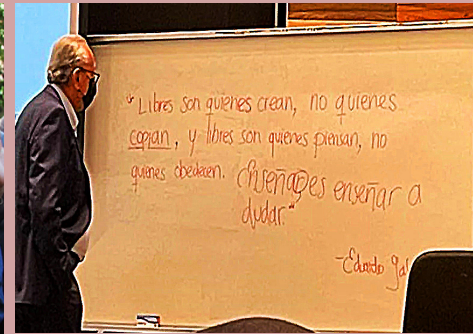 "Libres son quienes crean, no quienes
copian, y libres son quienes piensan, no
quienes obedecen. Enseñar es enseñar a
dudar."
-Eduardo Gal